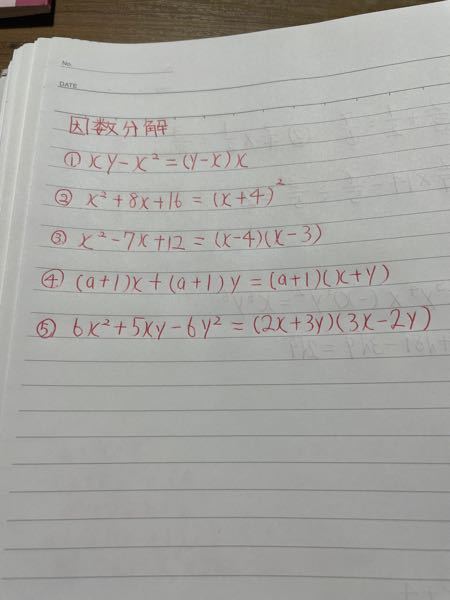 No.
DATE
因数分解
① xy-x²=(y-x)x
② x²+8x+16=(x+4)²
③ x²-7x+12=(x-4)(x-3)
④ (a+1)x+(a+1)y=(a+1)(x+y)
⑤ 6x²+5xy-6y²=(2x+3y)(3x-2y)